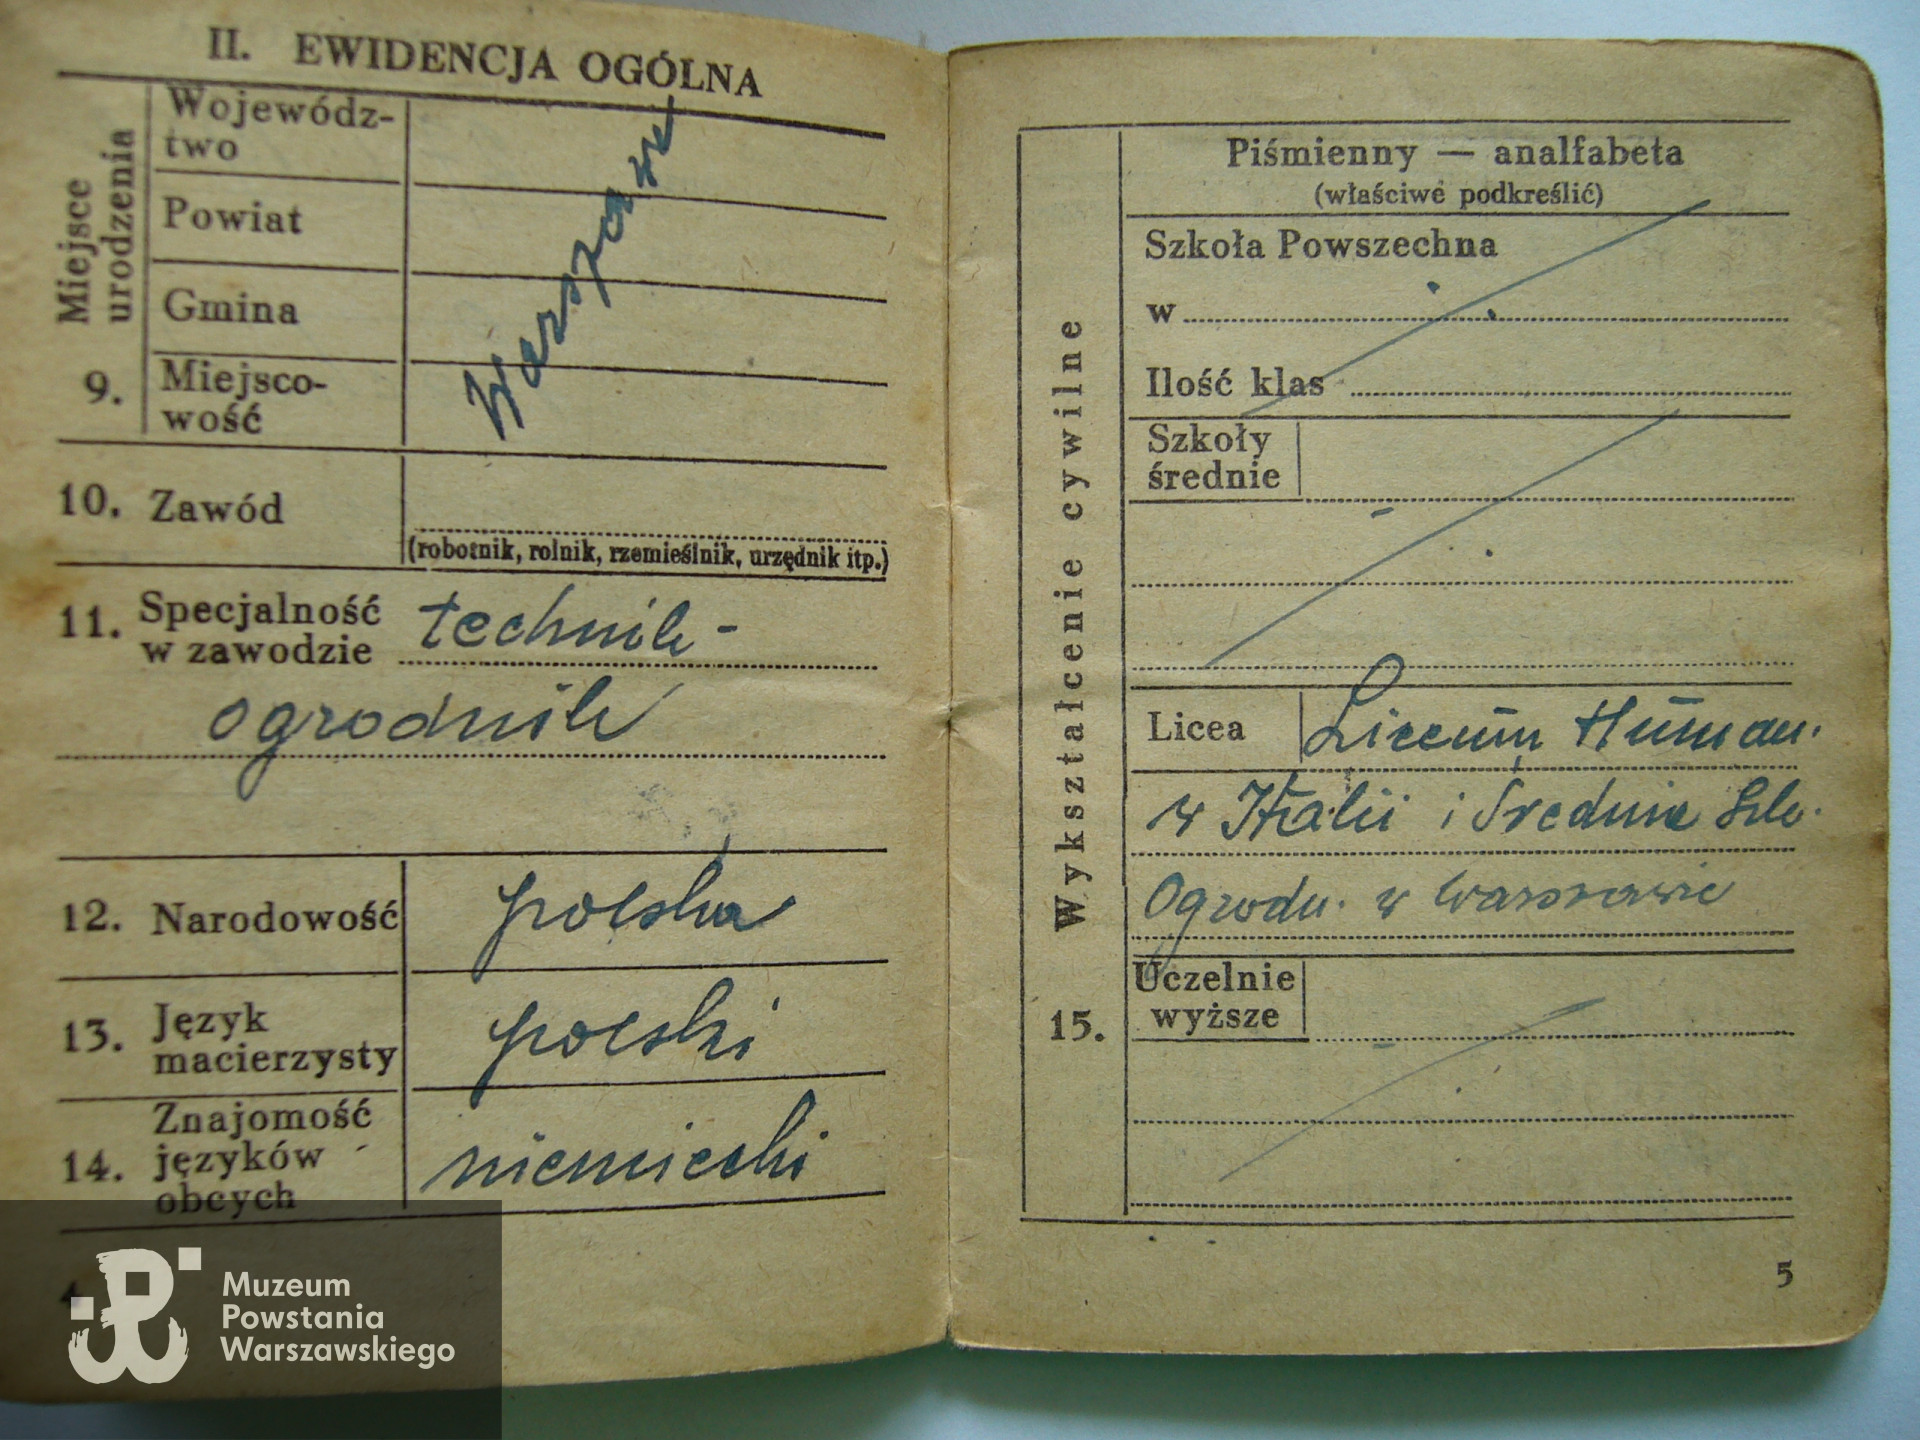 II. EWIDENCJA OGÓLNA
9. Miejsce urodzenia
Wojewódz-
two
Powiat
Gmina
Miejsco-
wość
Warszawa
10. Zawód
(robotnik, rolnik, rzemieślnik, urzędnik itp.)
11. Specjalność
w zawodzie
technik-
ogrodnik
12. Narodowość polska
13. Język
macierzysty
polski
14. Znajomość
języków
obcych
niemiecki
4
Muzeum
Powstania
Warszawskiego
15. Wykształcenie cywilne
Piśmienny — analfabeta
(właściwe podkreślić)
Szkoła Powszechna
w
Ilość klas
Szkoły
średnie
Licea Liceum Human.
w Italii i Średnie Szk.
Ogrodn. w Warszawie
Uczelnie
wyższe
5